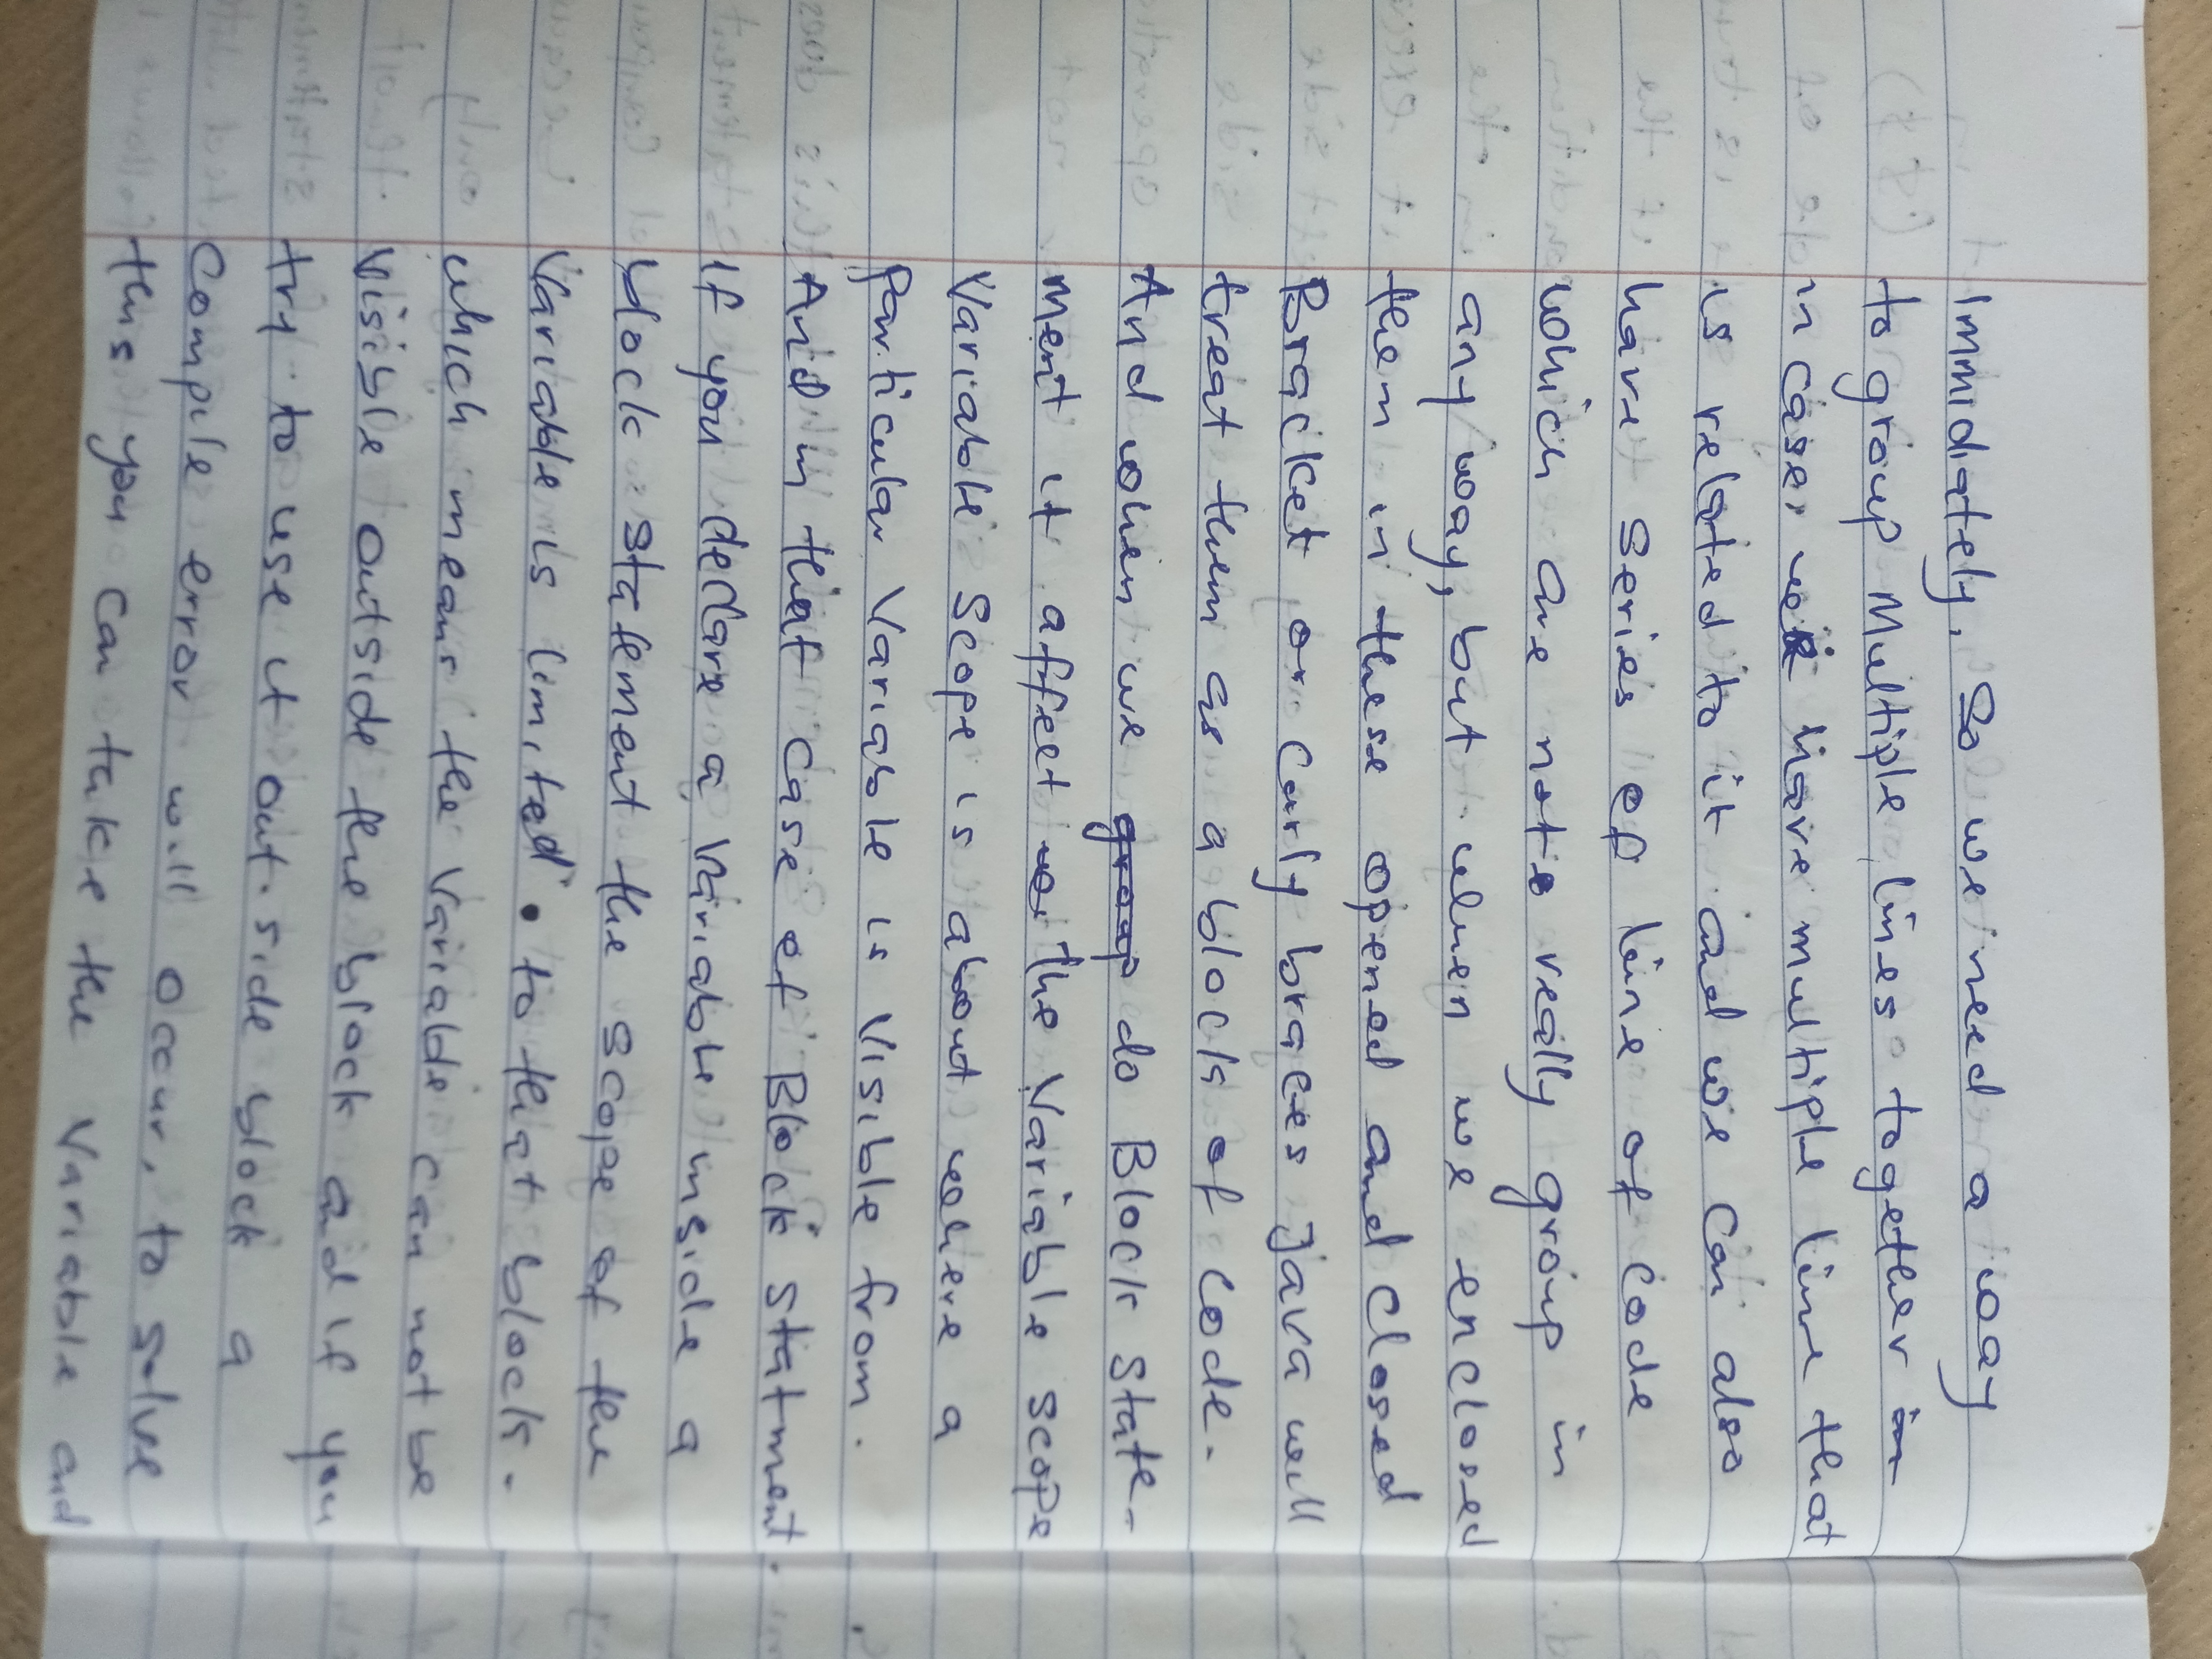 Immidiately. So we need a way
to group Multiple lines together in
in case, we have multiple line that
is related to it and we can also
have series of line of code
which are not really group in
any way, but when we enclosed
them in these opened and closed
Bracket or Curly braces Java will
treat them as a block of code.
And when we group do Block state-
ment it affect the Variable scope
Variable Scope is about where a
particular Variable is Visible from.
And in that case of Block statment.
If you declare a Variable inside a
block statement the scope of the
Variable is limited. to that block.
which means the Variable can not be
Visible outside the block and if you
try to use it out side block a
Compile error will occur, to solve
this you can take the Variable and